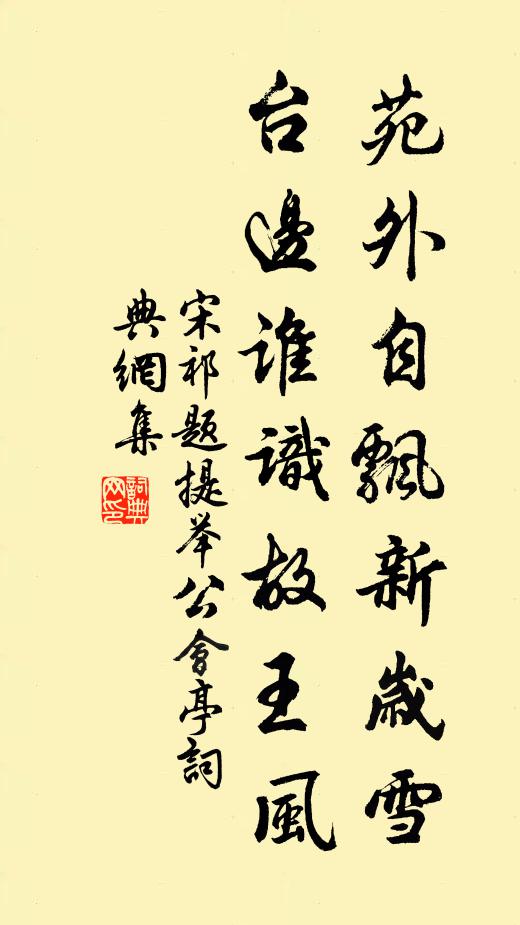 苑外自飄新歲雪
台邊誰識故王風
宋祁題提举公會亭詞
典網集
詞典網印